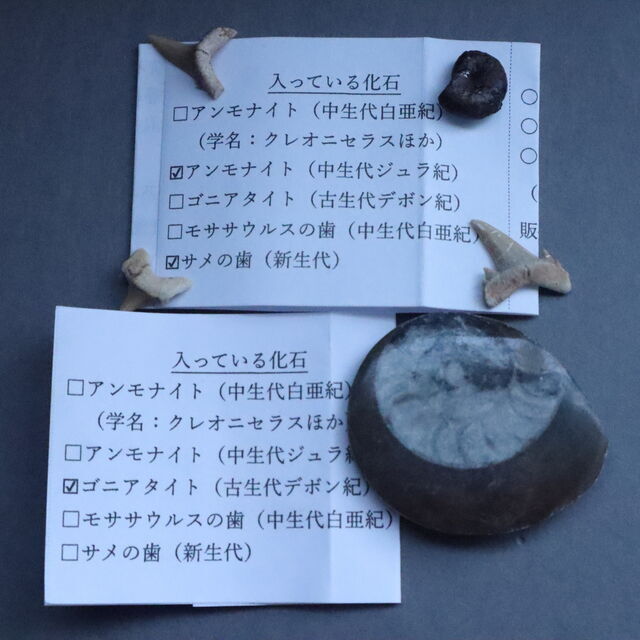 入っている化石
□アンモナイト（中生代白亜紀）
（学名：クレオニセラスほか）
☑アンモナイト（中生代ジュラ紀）
□ゴニアタイト（古生代デボン紀）
□モササウルスの歯（中生代白亜紀）
☑サメの歯（新生代）
○
○
○
（
販
入っている化石
□アンモナイト（中生代白亜紀）
（学名：クレオニセラスほか
□アンモナイト（中生代ジュラ紀
☑ゴニアタイト（古生代デボン紀）
□モササウルスの歯（中生代白亜紀）
□サメの歯（新生代）